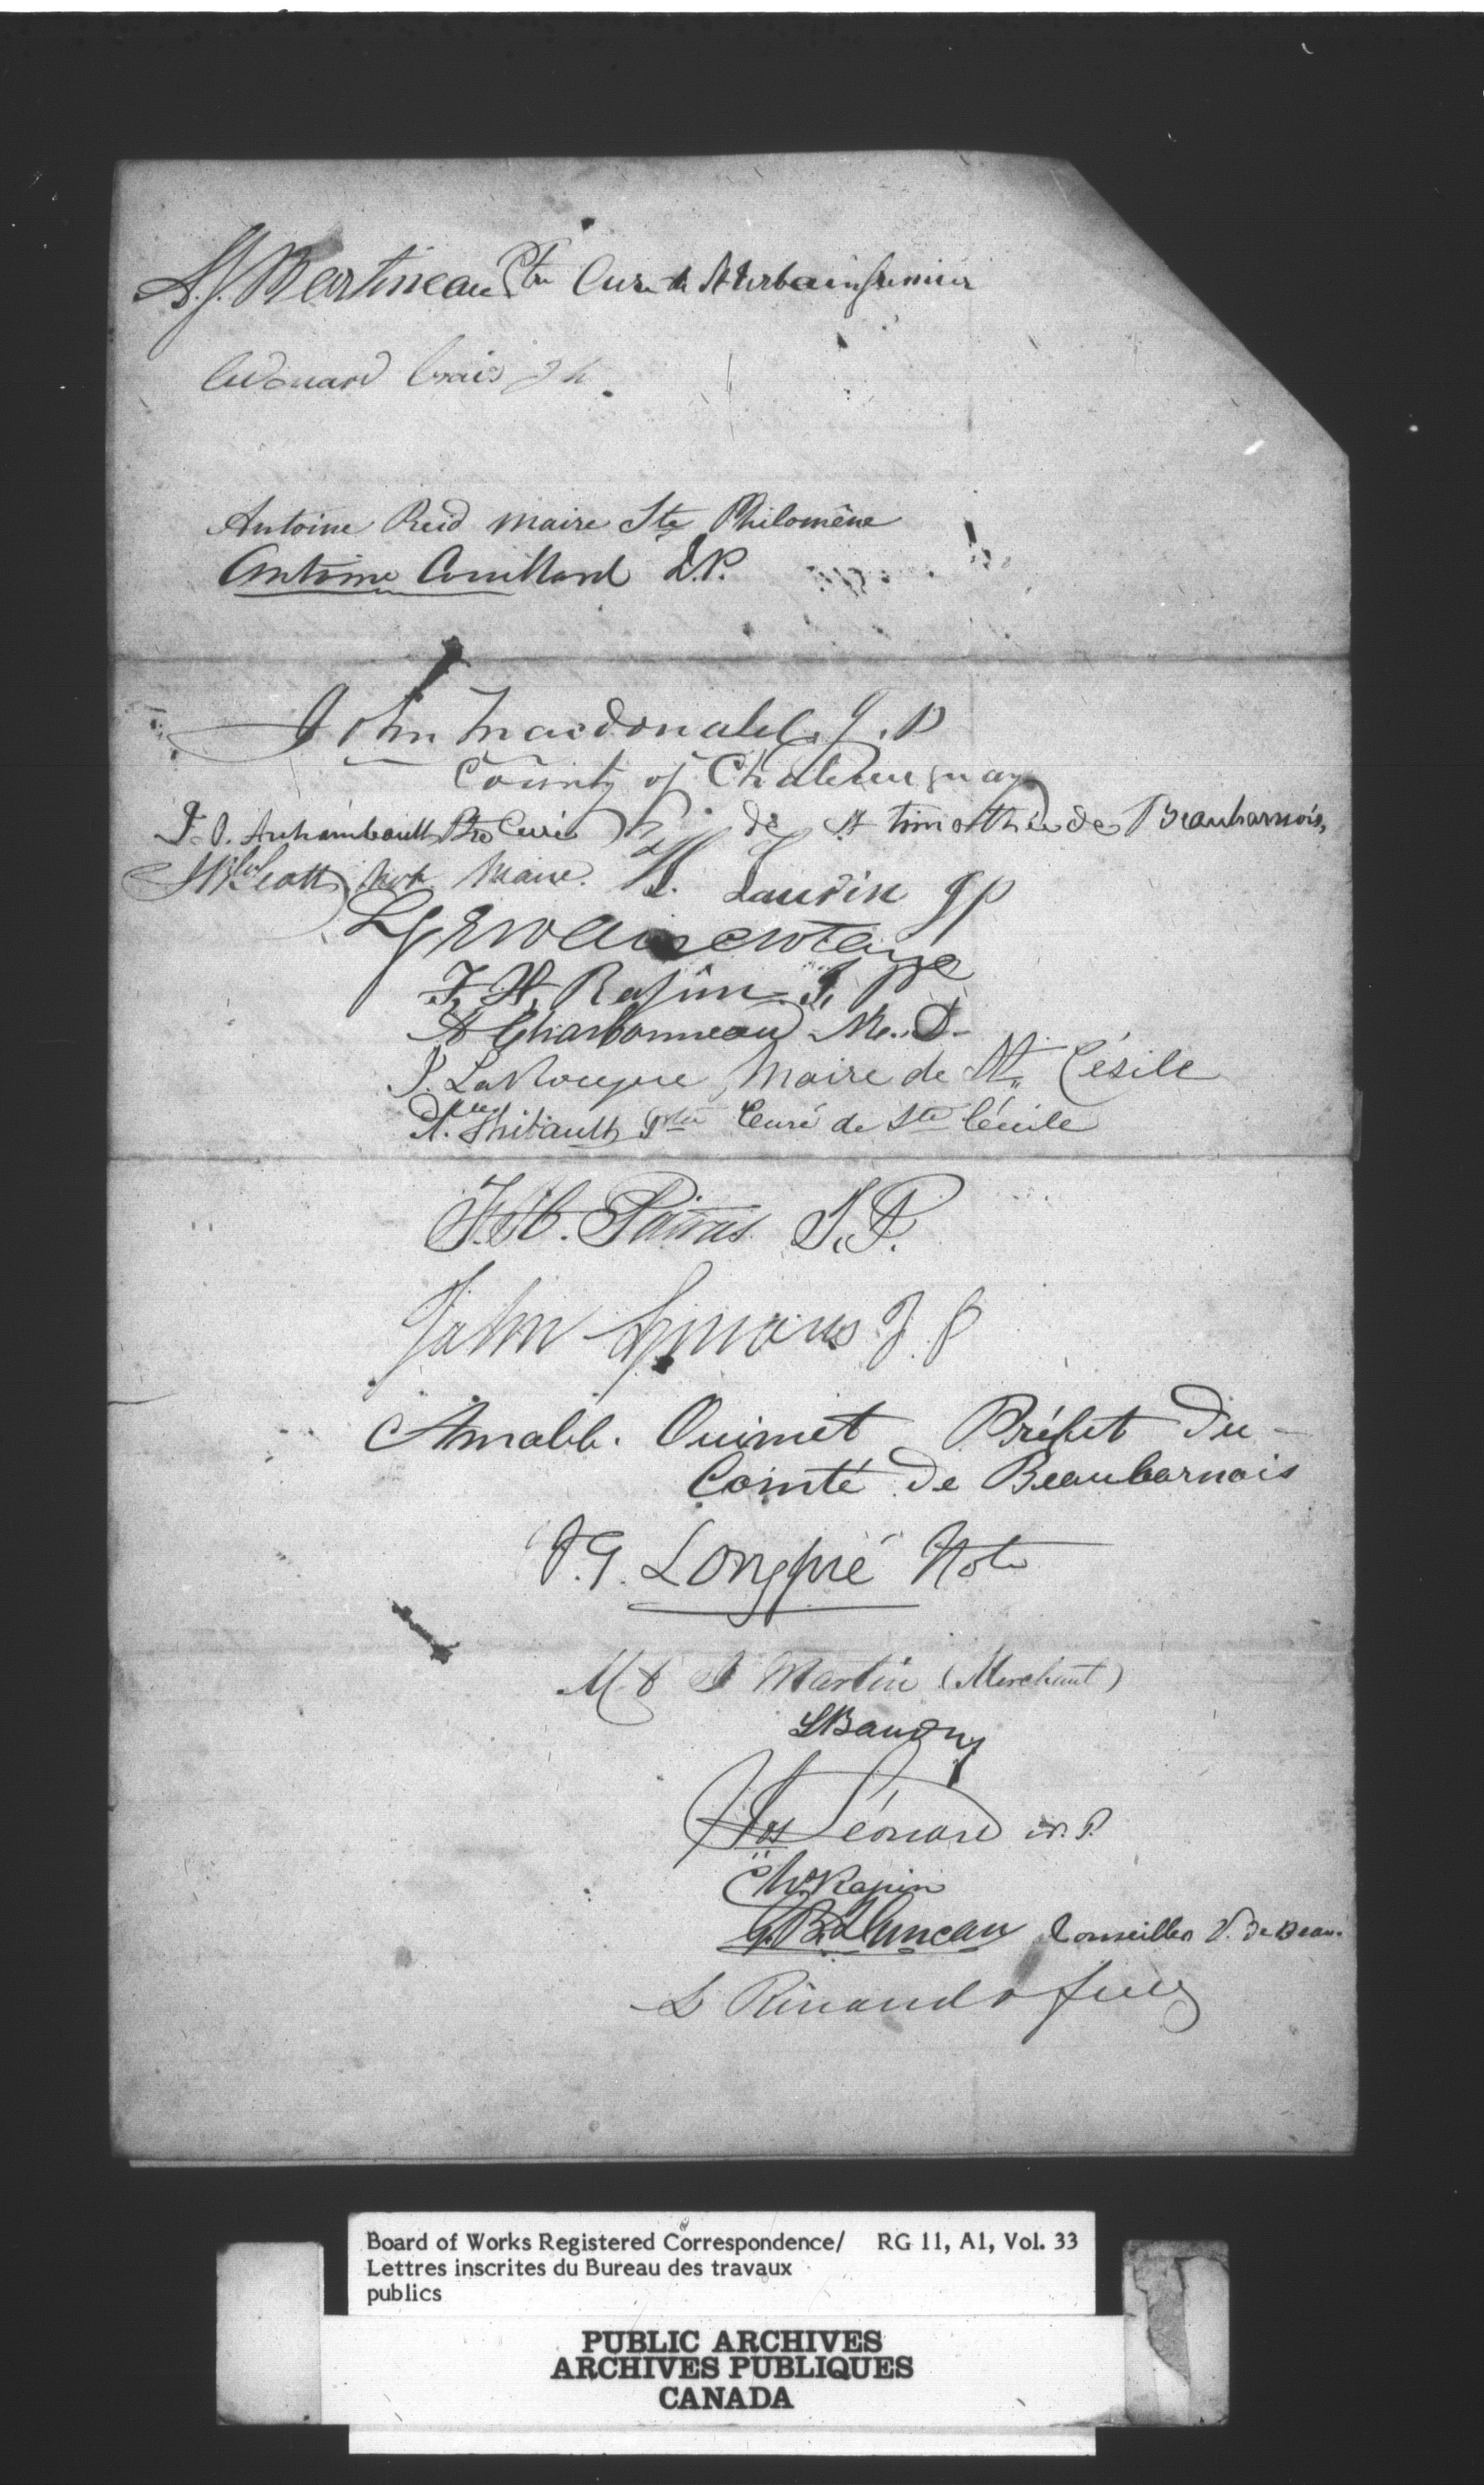 Martineau Ptre Curé de St Urbain premier
Edouard Brais
Antoine Reid Maire Ste Philomène
Antoine Couillard J.P.
John Macdonald J.P
County of Chateauguay
F. O. Archambault Ptre Curé de St timothée de Beauharnois,
Scott Not Maire.
H. Laurin JP
L Gervais notaire
F. H. Rapin J. P
A Charbonneau M. D.
P. LaRocque Maire de Ste Césile
Thibault Ptre Curé de Ste Cécile
J. P.
John Symons J P
Amable. Ouimet Préfet du
Comté de Beauharnois
J. G. Longpré Not
Martin (Merchant)
Baudry
Jos Léonard
Rapin
Conseiller V. de Beau.
L Rinaud
Board of Works Registered Correspondence/ RG 11, A1, Vol. 33
Lettres inscrites du Bureau des travaux
publics
PUBLIC ARCHIVES
ARCHIVES PUBLIQUES
CANADA